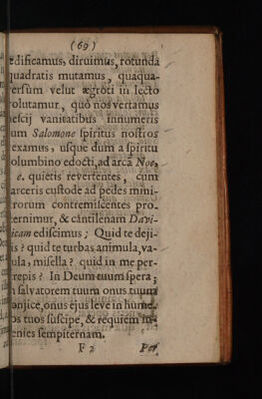 (69)
ædificamus, diruimus, rotunda
quadratis mutamus, quaqua-
ersum velut ægroti in lecto
olutamur, quò nos vertamus
escij vanitatibus innumeris
um Salomone spiritus nostros
examus, usque dum a spiritu
olumbino edocti, ad arcã Noe,
e. quietis revertentes, cum
arceris custode ad pedes mini-
rorum contremiscentes pro
ernimur, & cantilenam Davi-
icam ediscimus; Quid te deji-
is? quid te turbas animula, va-
ula, misella? quid in me per-
repis? In Deum tuum spera;
n salvatorem tuum onus tuum
onjice, onus ejus leve in hume-
os tuos suscipe, & requiem in-
enies sempiternam.
F 2 Per